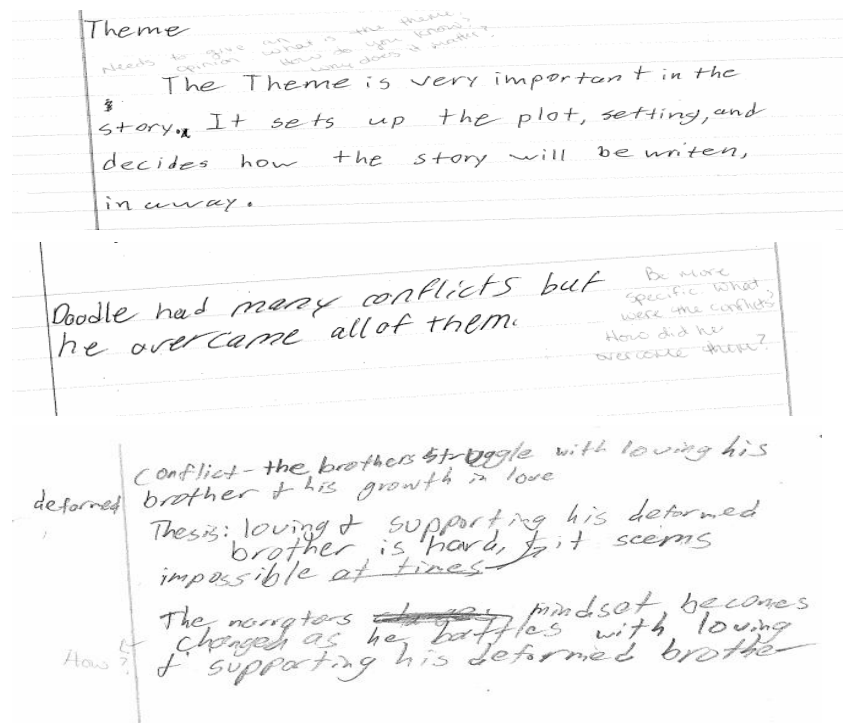 Theme
Needs to give an what is the theme?
opinion How do you know?
why does it matter?
The Theme is very important in the
story. It sets up the plot, setting, and
decides how the story will be writen,
in away.
Doodle had many conflicts but
he overcame all of them.
Be more
specific. What
were the conflicts?
How did he
overcome them?
Conflict - the brothers struggle with loving his
deformed brother & his growth in love
Thesis: loving & supporting his deformed
brother is hard, & it seems
impossible at times
The narrators mindset becomes
changed as he battles with loving
How? & supporting his deformed brother